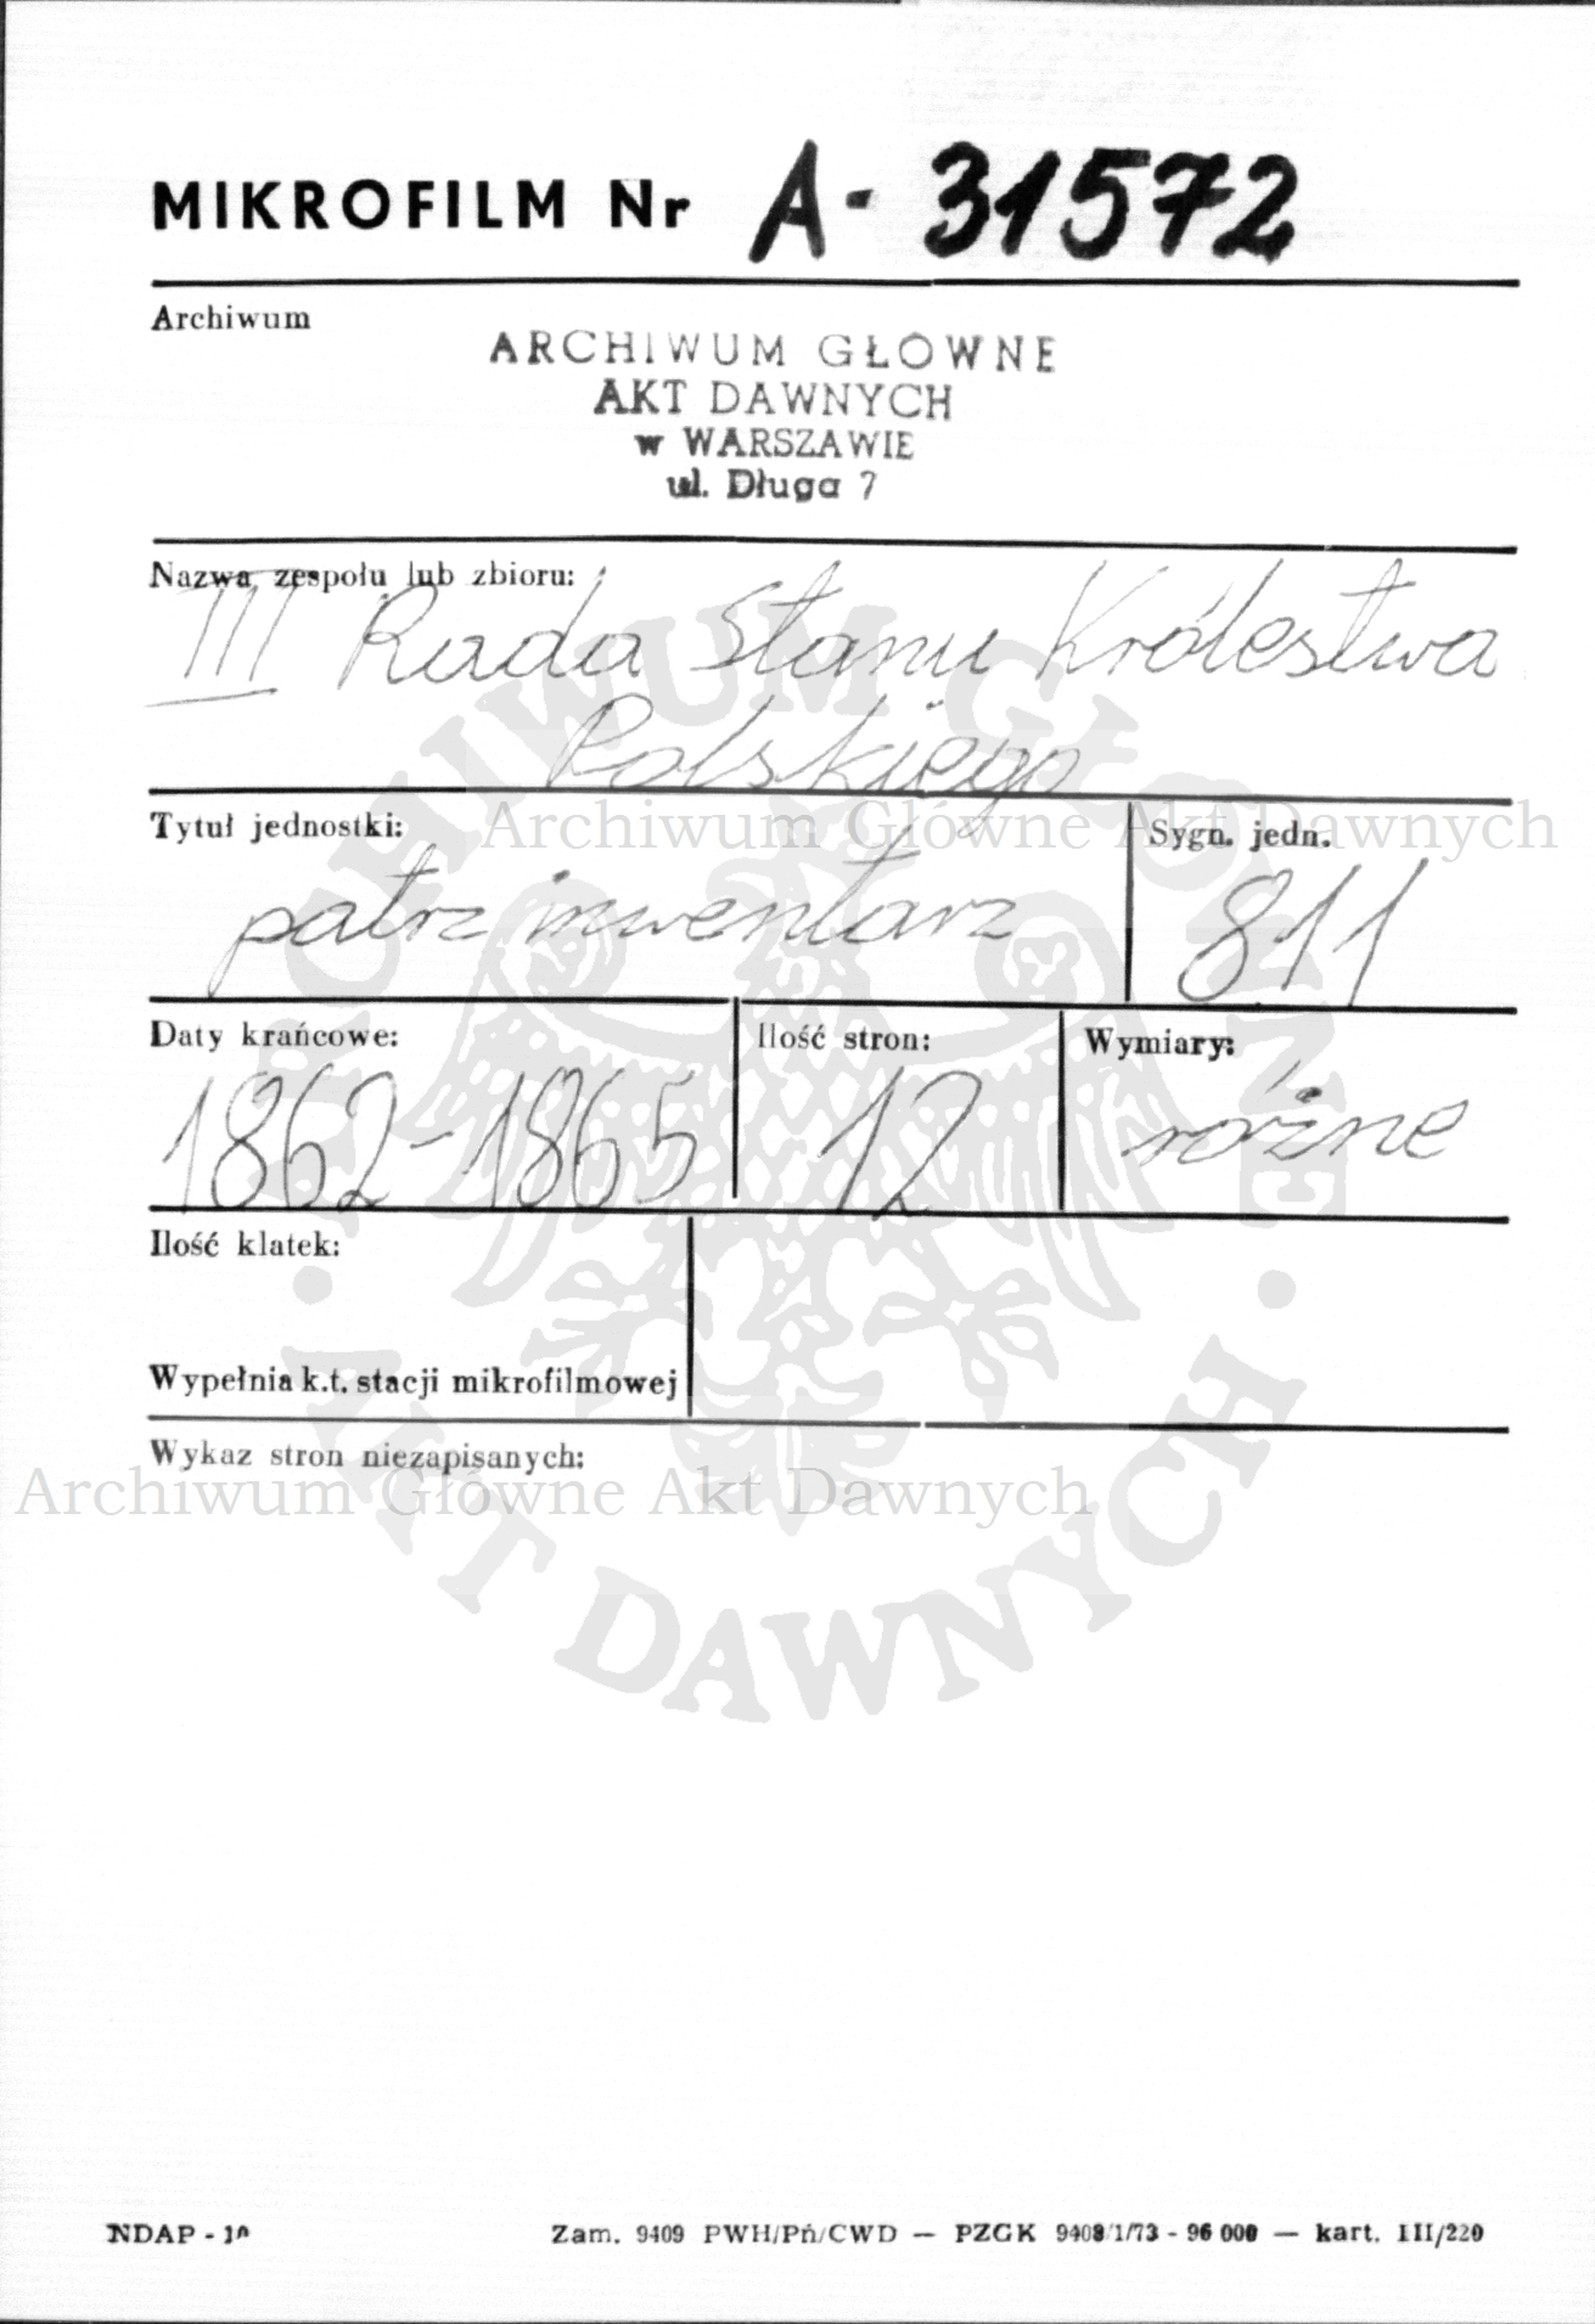 MIKROFILM Nr A-31572
Archiwum
ARCHIWUM GŁÓWNE
AKT DAWNYCH
w WARSZAWIE
ul. Długa 7
Nazwa zespołu lub zbioru:
III Rada Stanu Królestwa
Polskiego
Tytuł jednostki:
patrz inwentarz
Sygn. jedn.
811
Daty krańcowe:
1862-1865
Ilość stron:
12
Wymiary:
różne
Ilość klatek:
Wypełnia k.t. stacji mikrofilmowej
Wykaz stron niezapisanych:
Archiwum Główne Akt Dawnych
Archiwum Główne Akt Dawnych
ARCHIWUM GŁÓWNE · AKT DAWNYCH ·
NDAP - 10
Zam. 9409 PWH/Pń/CWD — PZGK 9408/1/73 - 96 000 — kart. III/220